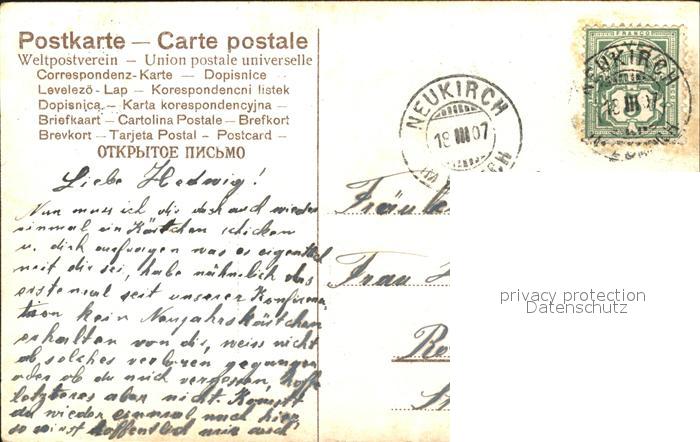 Postkarte — Carte postale
Weltpostverein — Union postale universelle
Correspondenz-Karte — Dopisnice
Levelező-Lap — Korespondencni listek
Dopisnica — Karta korespondencyjna —
Briefkaart — Cartolina Postale — Brefkort
Brevkort — Tarjeta Postal — Postcard —
ОТКРЫТОЕ ПИСЬМО
NEUKIRCH
18 III 07
FRANCO
NEUKIRCH
Liebe Hedwig!
Nun muss ich dir doch auch wieder
einmal ein Kärtchen schicken
u. dich anfragen was es eigentlich
mit dir sei, habe nähmlich das
erstemal seit unserer Konfirma-
tion kein Neujahrskärtchen
erhalten von dir, weiss nicht
ob solches verloren gegangen
oder ob du mich vergessen, hoffe
letzteres aber nicht. Kommst
du wieder einmal nach hier,
so wirst hoffentlich mir auch
Fräulein
Frau H
privacy protection
Datenschutz